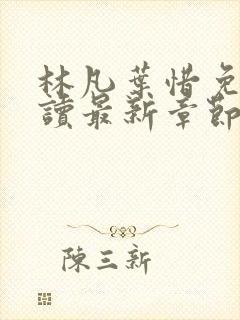 林凡葉惜免
讀最新章節
陳三新